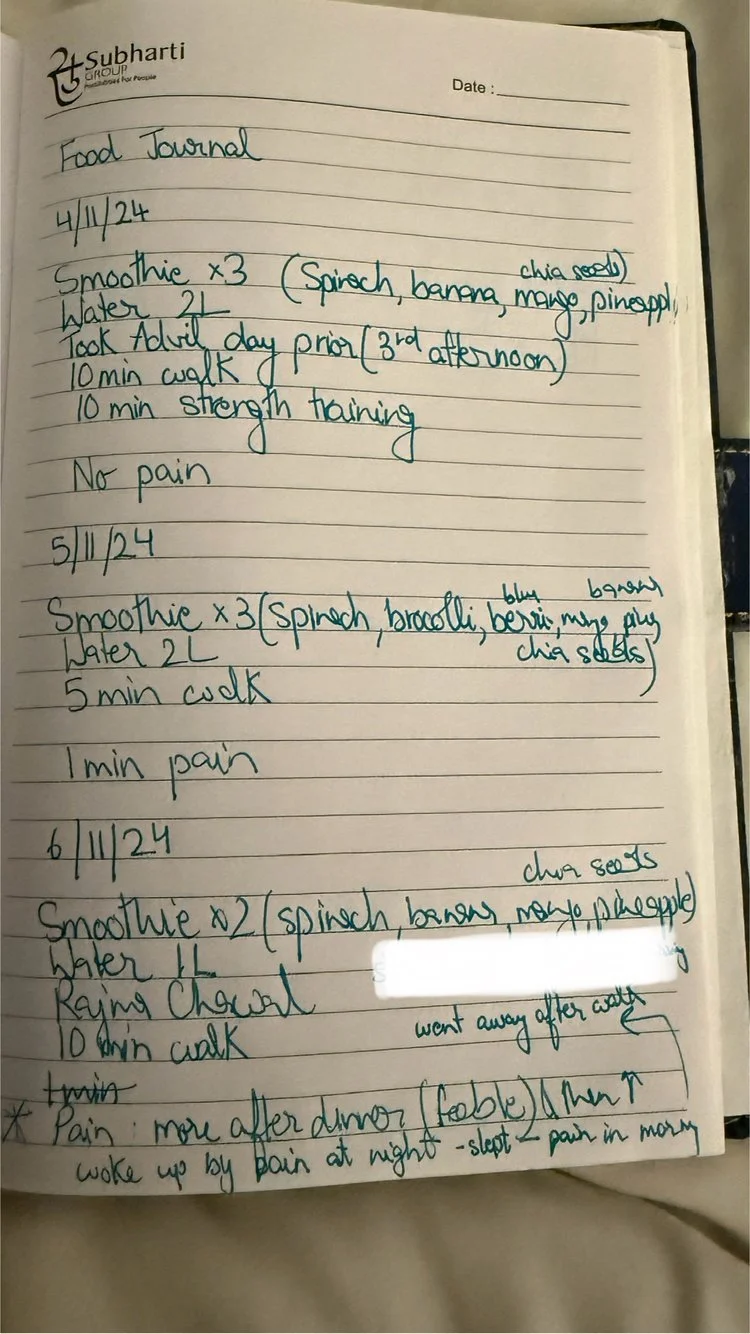 Subharti
GROUP
Institutions For People
Date :
Food Journal
4/11/24
chia seeds)
Smoothie x3 (Spinach, banana, mango, pineapple,
Water 2L
Took Advil day prior (3rd afternoon)
10 min walk
10 min strength training
No pain
5/11/24
blue banana
Smoothie x3 (spinach, brocolli, berri, mango
Water 2L
chia seeds)
5 min walk
1 min pain
6/11/24
chia seeds
Smoothie x2 (spinach, banana, mango, pineapple)
Water 1L
Rajma Chawal
went away after walk
10 min walk
1 min
* Pain : more after dinner (feeble) then ↑
woke up by pain at night - slept - pain in morning